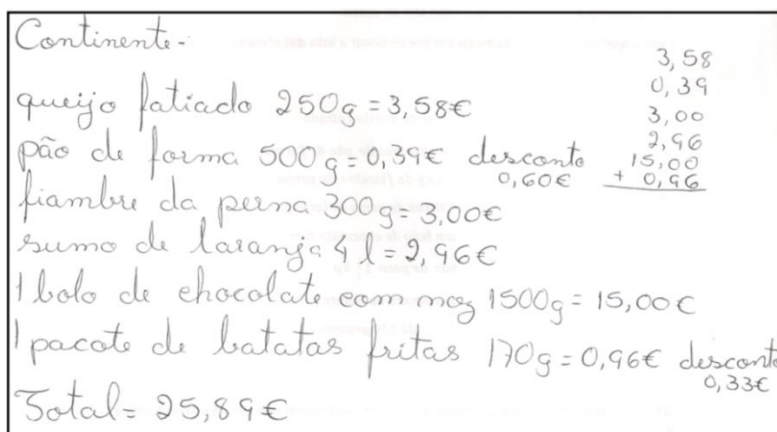 Continente-
3,58
0,39
3,00
2,96
15,00
+ 0,96
queijo fatiado 250g = 3,58€
pão de forma 500g = 0,39€ desconto
0,60€
fiambre da perna 300g = 3,00€
sumo de laranja 4 l = 2,96€
1 bolo de chocolate com noz 1500g = 15,00€
1 pacote de batatas fritas 170g = 0,96€ desconto
0,33€
Total = 25,89€